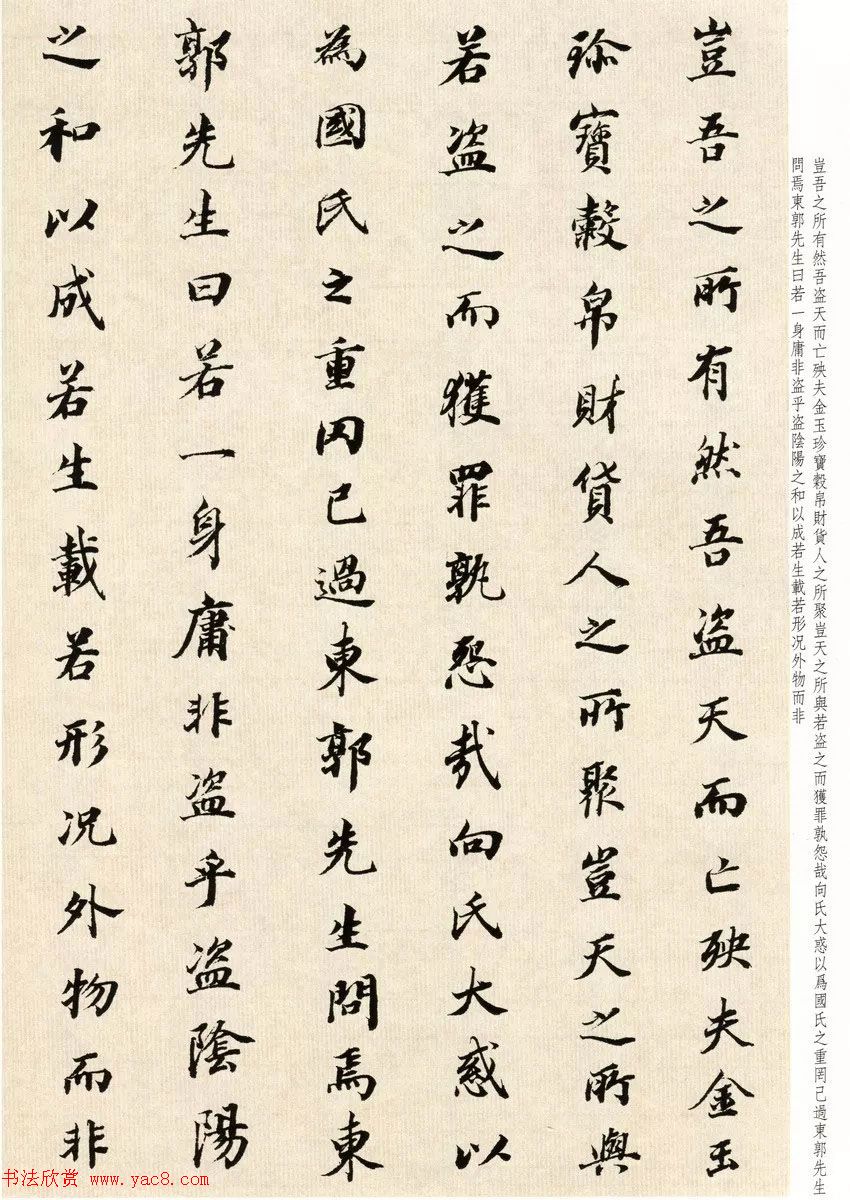 豈吾之所有然吾盗天而亡殃夫金玉珍寶穀帛財貨人之所聚豈天之所與若盗之而獲罪孰怨哉向氏大惑以爲國氏之重罔己過東郭先生
問焉東郭先生曰若一身庸非盗乎盗陰陽之和以成若生載若形况外物而非
豈吾之所有然吾盗天而亡殃夫金玉
珍寶穀帛財貨人之所聚豈天之所與
若盗之而獲罪孰怨哉向氏大惑以
為國氏之重罔已過東郭先生問焉東
郭先生曰若一身庸非盗乎盗陰陽
之和以成若生載若形况外物而非
书法欣赏 www.yac8.com